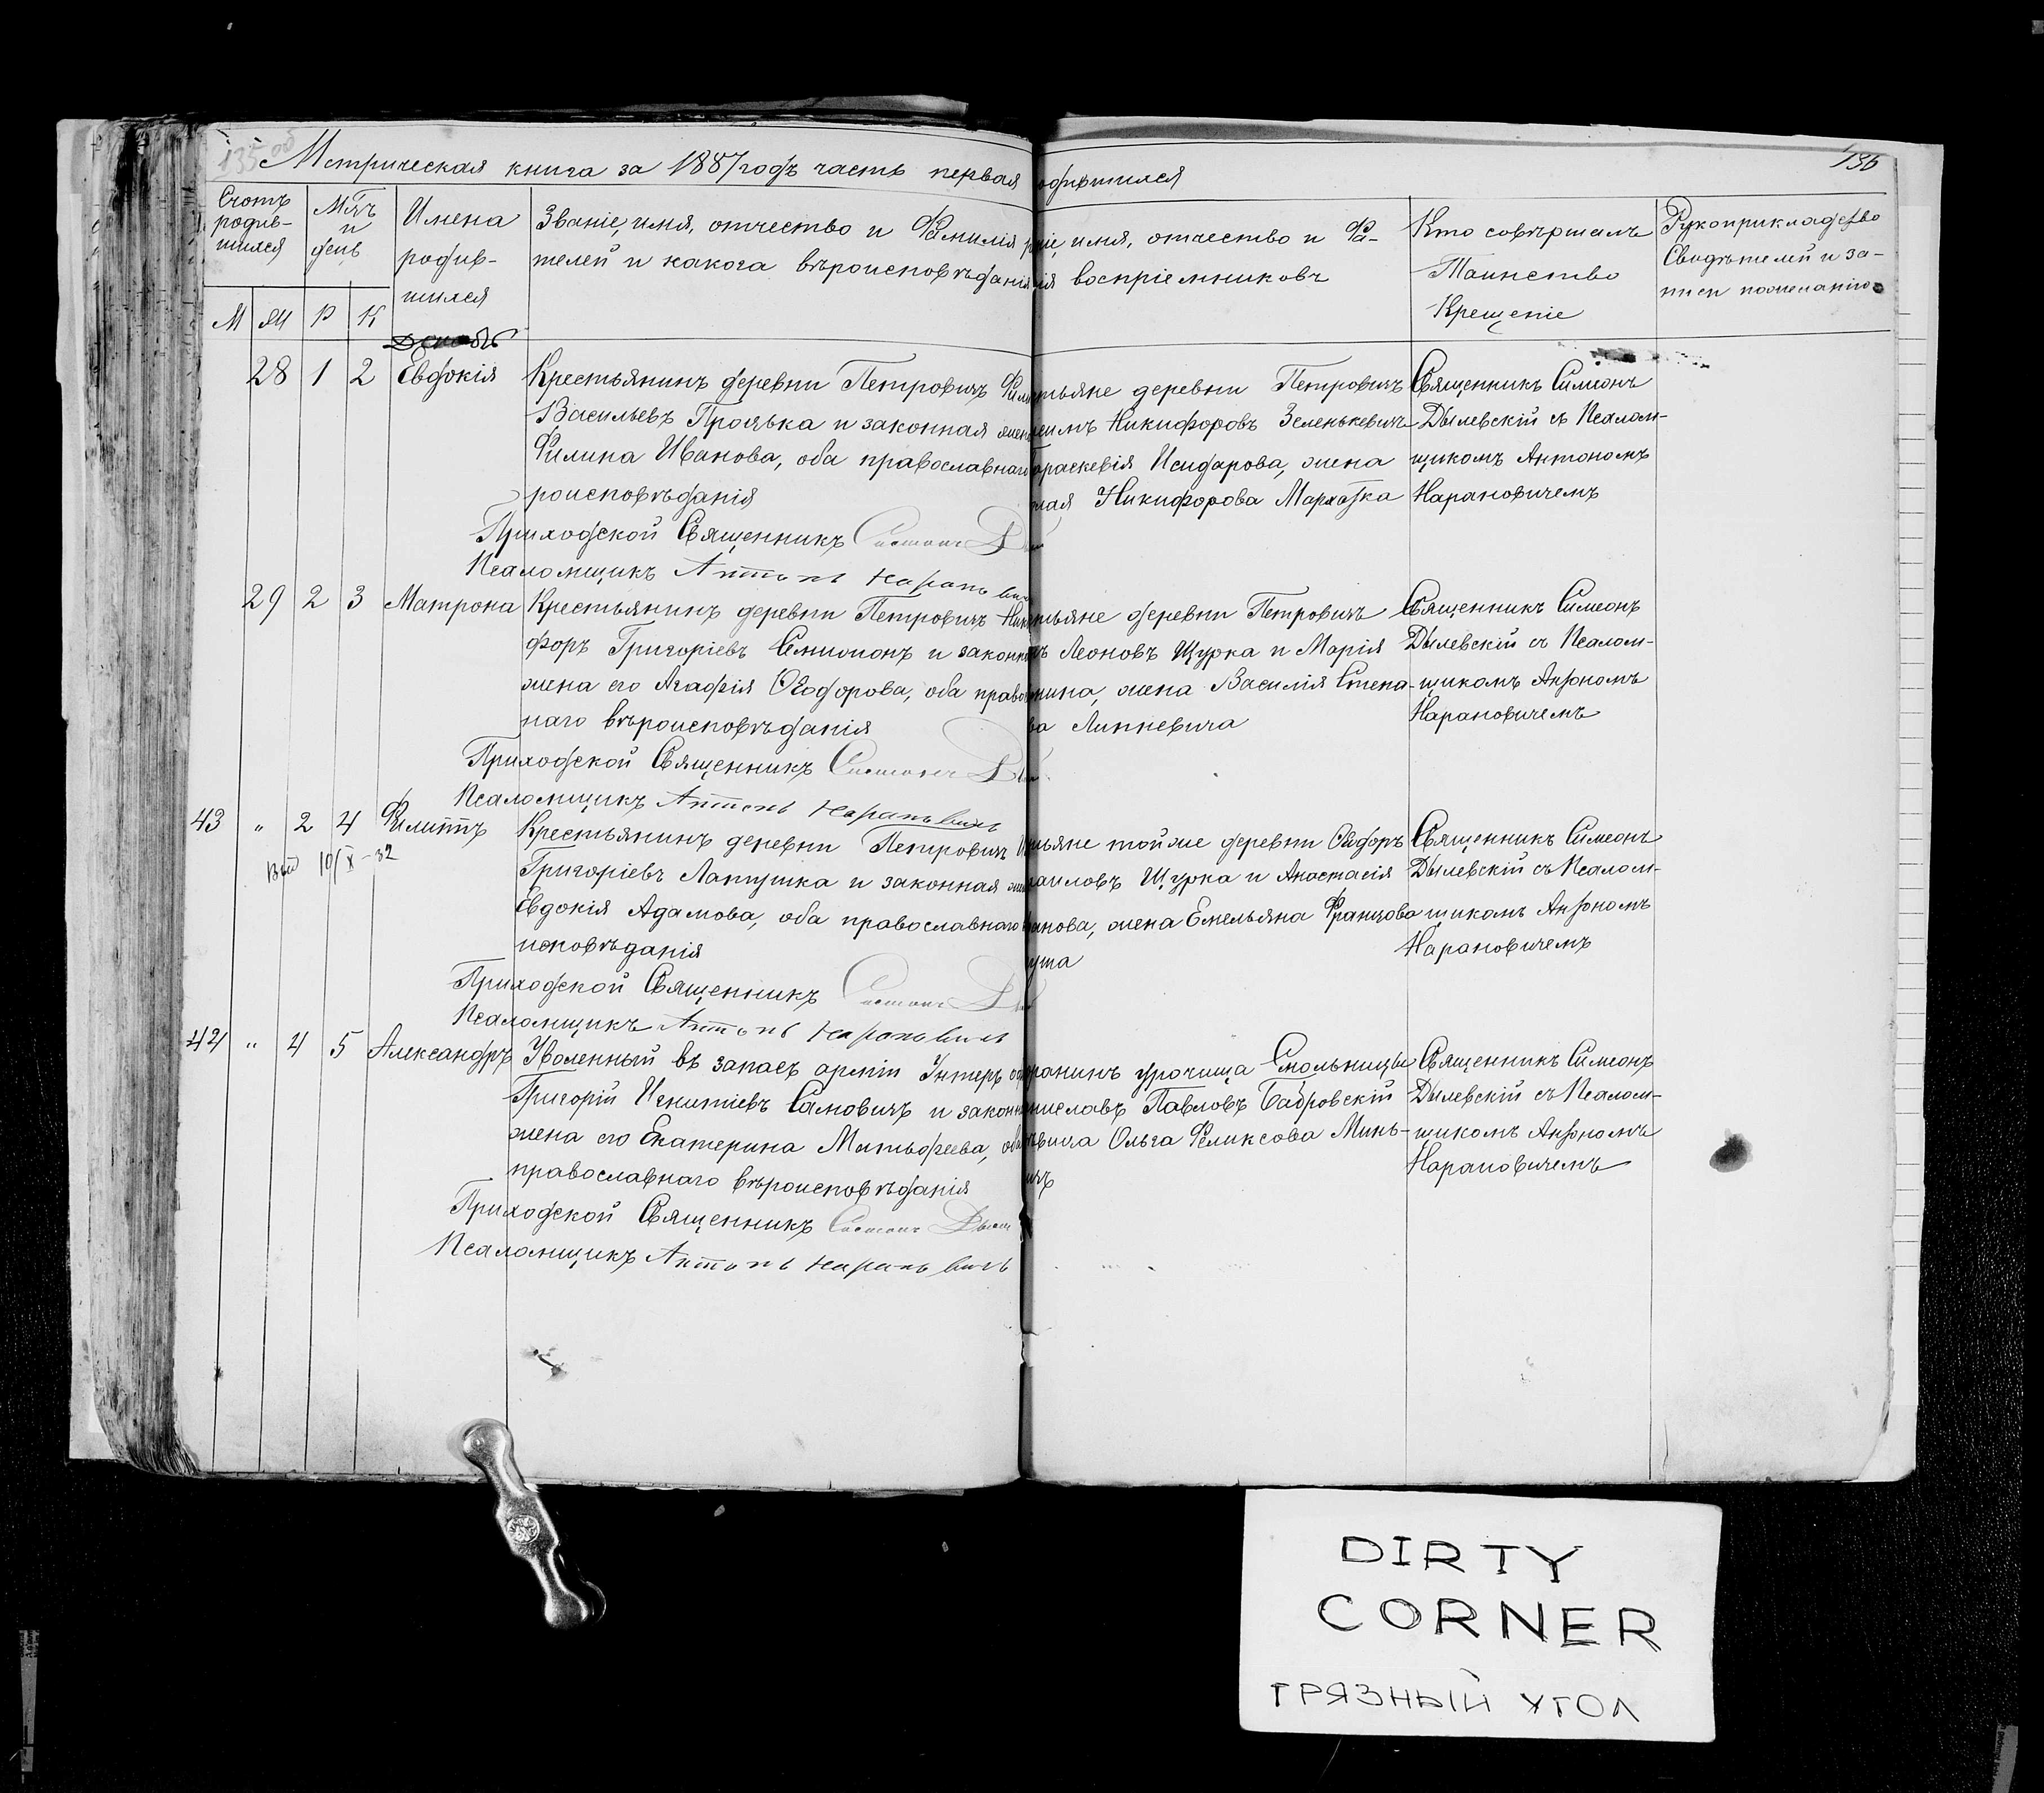 135 об
136
Метрическая книга за 1887 годъ часть первая
Счотъ родив-шихся
М-цъ и день
Имена родив-шихся
Званіе, имя, отчество и Фамилія
телей и какога вѣроисповѣданія
имя, отчество и Фа-
воспріемниковъ
Кто совершалъ
Таинство
Крещеніе
Рукоприкладство
Свидѣтелей и за-
писи по желанію
М Ж Р К
28 1 2 Евдокія
Крестьянинъ деревни Петровичъ
Васильевъ Проявка и законная
Филипа Иванова, оба православнаго
роисповѣданія
Приходской Священникъ Симеонъ
Псаломщикъ Антонъ Наранович
деревни Петровичъ
Никифоровъ Зенькевичъ
Исидарова, жена
Никифорова Мархотка
Священникъ Симеонъ
Дылевскій съ Псалом-
щикомъ Антономъ
Нарановичемъ
29 2 3 Матрона
Крестьянинъ деревни Петровичъ
форъ Григоріевъ Семионъ и
жена его Агафія Ѳеодорова, оба
наго вѣроисповѣданія
Приходской Священникъ Симеонъ
Псаломщикъ Антонъ Нарановичъ
деревни Петровичъ
Леоновъ Щурка и Марія
жена Василія Степа-
ва Липневича
Священникъ Симеонъ
Дылевскій съ Псалом-
щикомъ Антономъ
Нарановичемъ
43 " 2 4 Филиппъ
10/X-32
Крестьянинъ деревни Петровичъ
Григоріевъ Лапушка и законная
Евдокія Адамова, оба православнаго
исповѣданія
Приходской Священникъ Симеонъ
Псаломщикъ Антонъ Нарановичъ
тойже деревни Ѳеодоръ
Щурка и Анастасія
жена Емельяна Францова
Священникъ Симеонъ
Дылевскій съ Псалом-
щикомъ Антономъ
Нарановичемъ
44 " 4 5 Александръ
Уволенный въ запасъ арміи Унтеръ
Григорій Игнатіевъ Самовичъ и
жена его Екатерина Матьофеева,
православнаго вѣроисповѣданія
Приходской Священникъ Симеонъ
Псаломщикъ Антонъ Нарановичъ
урочища Смольницы
Павловъ Бабровскій
Ольга Феликсова Минь-
Священникъ Симеонъ
Дылевскій съ Псалом-
щикомъ Антономъ
Нарановичемъ
DIRTY
CORNER
ГРЯЗНЫЙ УГОЛ